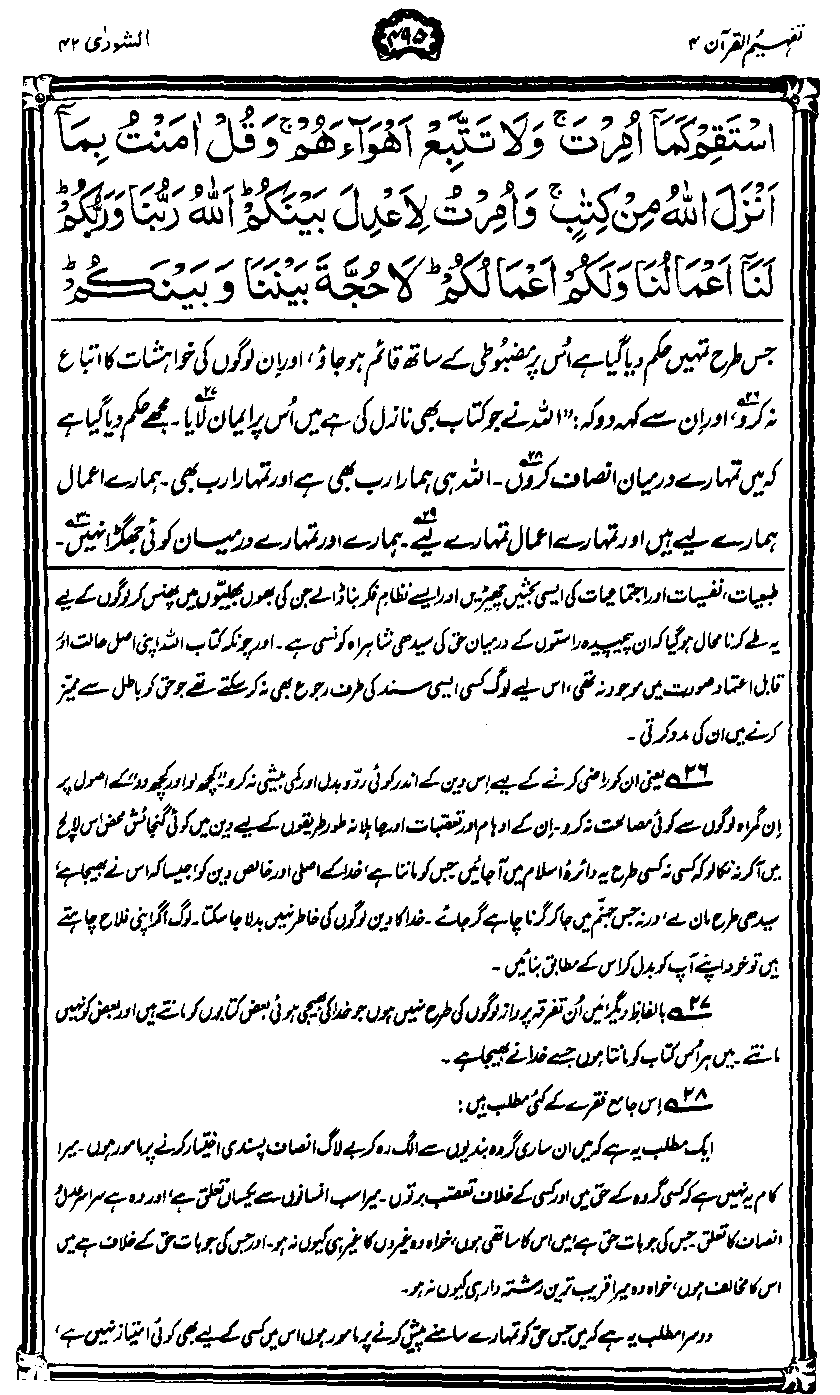 تفہیم القرآن ۴
۴۹۵
الشورٰی ۴۲
اسْتَقِمْ كَمَآ اُمِرْتَ ۚ وَلَا تَتَّبِعْ اَهْوَآءَهُمْ ۚ وَقُلْ اٰمَنْتُ بِمَآ
اَنْزَلَ اللّٰهُ مِنْ كِتٰبٍ ۚ وَاُمِرْتُ لِاَعْدِلَ بَيْنَكُمْ ؕ اَللّٰهُ رَبُّنَا وَرَبُّكُمْ ؕ
لَنَآ اَعْمَالُنَا وَلَكُمْ اَعْمَالُكُمْ ؕ لَا حُجَّةَ بَيْنَنَا وَبَيْنَكُمْ ؕ
جس طرح تمہیں حکم دیا گیا ہے اُس پر مضبوطی کے ساتھ قائم ہو جاؤ، اور اِن لوگوں کی خواہشات کا اتباع
نہ کرو۲۶، اور اِن سے کہہ دو کہ: ”اللہ نے جو کتاب بھی نازل کی ہے میں اُس پر ایمان لایا۲۷۔ مجھے حکم دیا گیا ہے
کہ میں تمہارے درمیان انصاف کروں۲۸۔ اللہ ہی ہمارا رب بھی ہے اور تمہارا رب بھی۔ ہمارے اعمال
ہمارے لیے ہیں اور تمہارے اعمال تمہارے لیے۲۹۔ ہمارے اور تمہارے درمیان کوئی جھگڑا نہیں۳۰۔
طبعیات، نفسیات اور اجتماعیات کی ایسی بحثیں چھیڑیں اور ایسے نظامِ فکر بنا ڈالے جن کی بھول بھلیّوں میں پھنس کر لوگوں کے لیے
یہ طے کرنا محال ہو گیا کہ ان پیچیدہ راستوں کے درمیان حق کی سیدھی شاہراہ کونسی ہے۔ اور چونکہ کتاب اللہ اپنی اصل حالت اور
قابل اعتماد صورت میں موجود نہ تھی، اس لیے لوگ کسی ایسی سند کی طرف رجوع بھی نہ کر سکتے تھے جو حق کو باطل سے ممیز
کرنے میں ان کی مدد کرتی۔
۲۶ یعنی ان کو راضی کرنے کے لیے اِس دین کے اندر کوئی ردّ و بدل اور کمی بیشی نہ کرو۔ ”کچھ لو اور کچھ دو“ کے اصول پر
اِن گمراہ لوگوں سے کوئی مصالحت نہ کرو۔ اِن کے اوہام اور تعصبات اور جاہلانہ طور طریقوں کے لیے دین میں کوئی گنجائش محض اس لالچ
میں آ کر نہ نکالو کہ کسی نہ کسی طرح یہ دائرۂ اسلام میں آ جائیں۔ جس کو ماننا ہے، خدا کے اصلی اور خالص دین کو، جیسا کہ اس نے بھیجا ہے،
سیدھی طرح مان لے، ورنہ جس جہنّم میں جا کر گرنا چاہے گر جائے۔ خدا کا دین لوگوں کی خاطر نہیں بدلا جا سکتا۔ لوگ اگر اپنی فلاح چاہتے
ہیں تو خود اپنے آپ کو بدل کر اس کے مطابق بنائیں۔
۲۷ بالفاظ دیگر میں اُن تفرقہ پرداز لوگوں کی طرح نہیں ہوں جو خدا کی بھیجی ہوئی بعض کتابوں کو مانتے ہیں اور بعض کو نہیں
مانتے۔ میں ہر اُس کتاب کو مانتا ہوں جسے خدا نے بھیجا ہے۔
۲۸ اِس جامع فقرے کے کئی مطلب ہیں:
ایک مطلب یہ ہے کہ میں ان ساری گروہ بندیوں سے الگ رہ کر بے لاگ انصاف پسندی اختیار کرنے پر مامور ہوں۔ میرا
کام یہ نہیں ہے کہ کسی گروہ کے حق میں اور کسی کے خلاف تعصّب برتوں۔ میرا سب انسانوں سے یکساں تعلق ہے، اور وہ ہے سراسر عدل و
انصاف کا تعلق۔ جس کی جو بات حق ہے، میں اس کا ساتھی ہوں، خواہ وہ غیروں کا غیر ہی کیوں نہ ہو۔ اور جس کی جو بات حق کے خلاف ہے میں
اس کا مخالف ہوں، خواہ وہ میرا قریب ترین رشتہ دار ہی کیوں نہ ہو۔
دوسرا مطلب یہ ہے کہ میں جس حق کو تمہارے سامنے پیش کرنے پر مامور ہوں اس میں کسی کے لیے بھی کوئی امتیاز نہیں ہے،